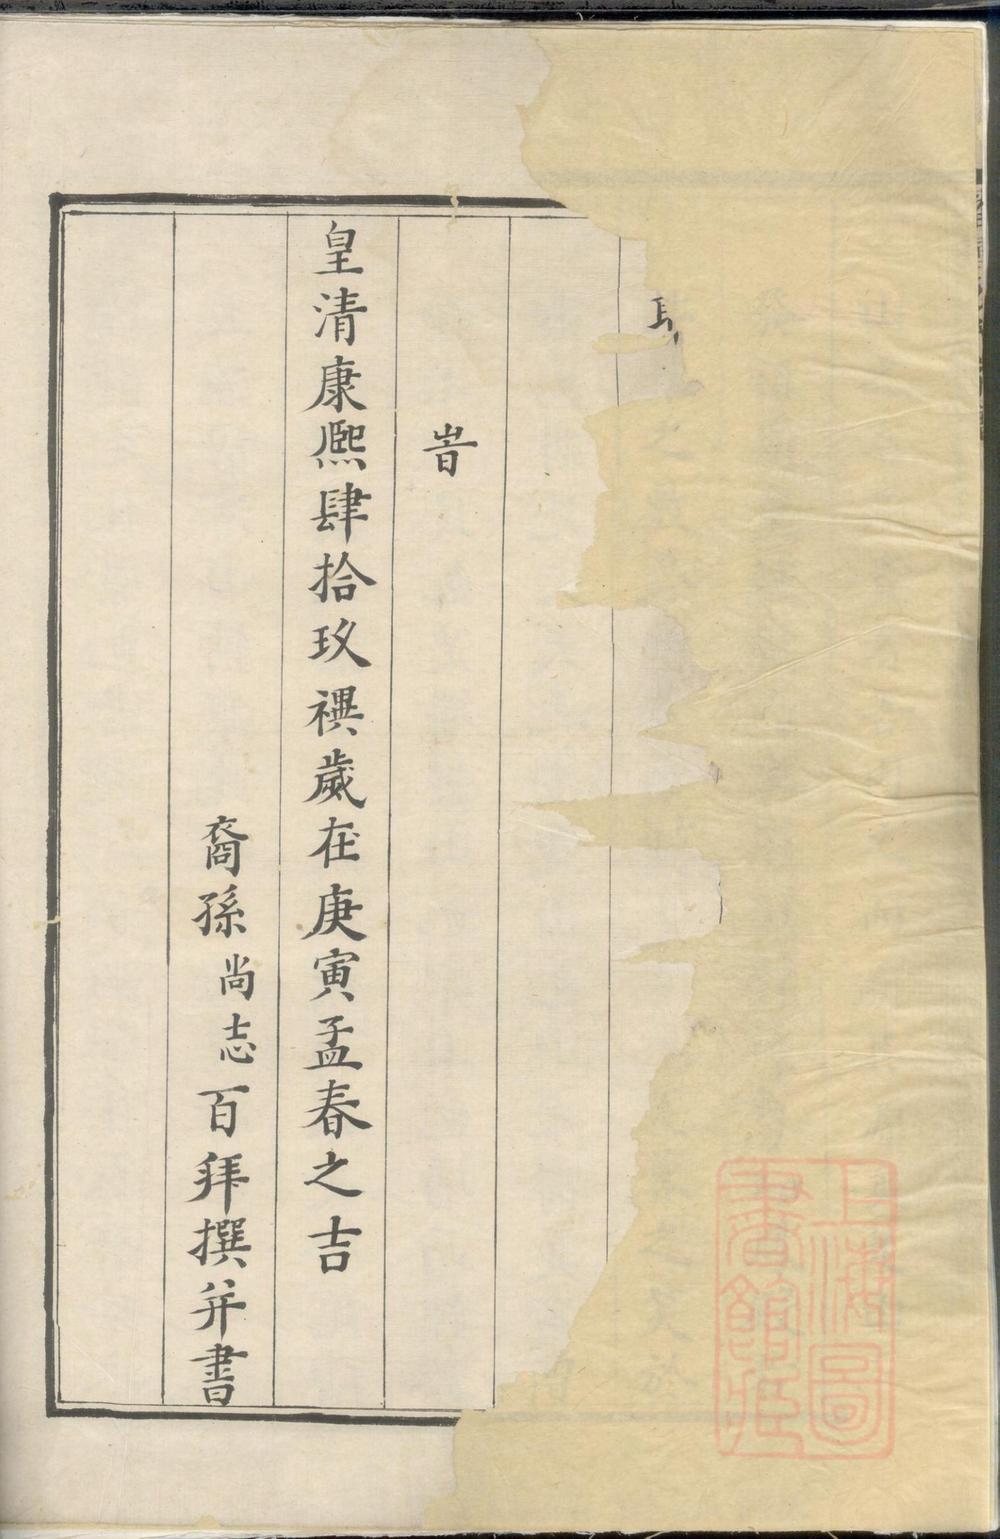 旹
皇清康熙肆拾玖禩歲在庚寅孟春之吉
裔孫尚志百拜撰并書
上海圖
書館藏